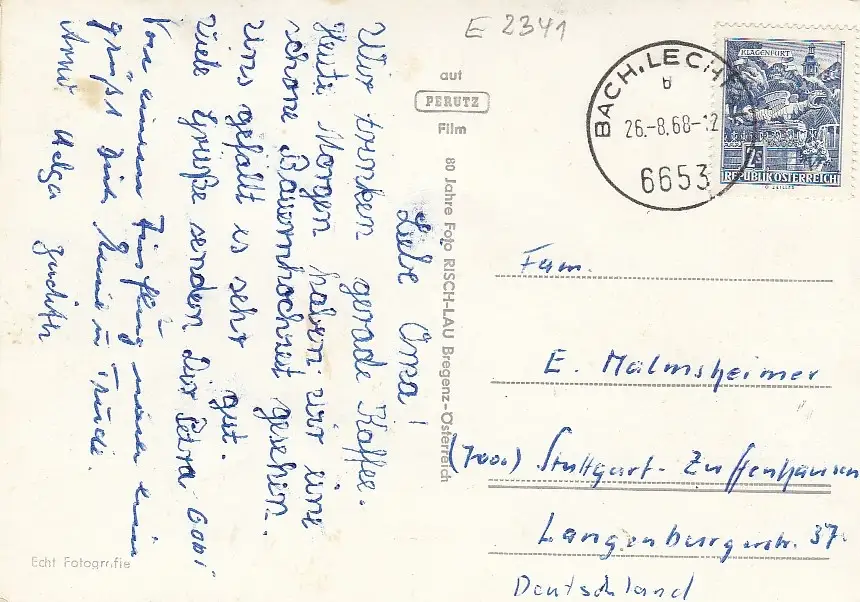 E 2341
auf
PERUTZ
Film
80 Jahre Foto RISCH-LAU Bregenz-Österreich
BACH, LECHT
b
26.-8.68-12
6653
KLAGENFURT
2S
REPUBLIK ÖSTERREICH
Liebe Oma!
Wir trinken gerade Kaffee.
Heute Morgen haben wir eine
schöne Bauernhochzeit gesehen.
Uns gefällt es sehr gut.
Viele Grüße senden dir Petra Gabi
Von einem Ausflug
grüßt Dich Trude.
Helga Judith
Fam.
E. Malmsheimer
(7000) Stuttgart-Zuffenhausen
Langenburgerstr. 37
Deutschland
Echt Fotografie